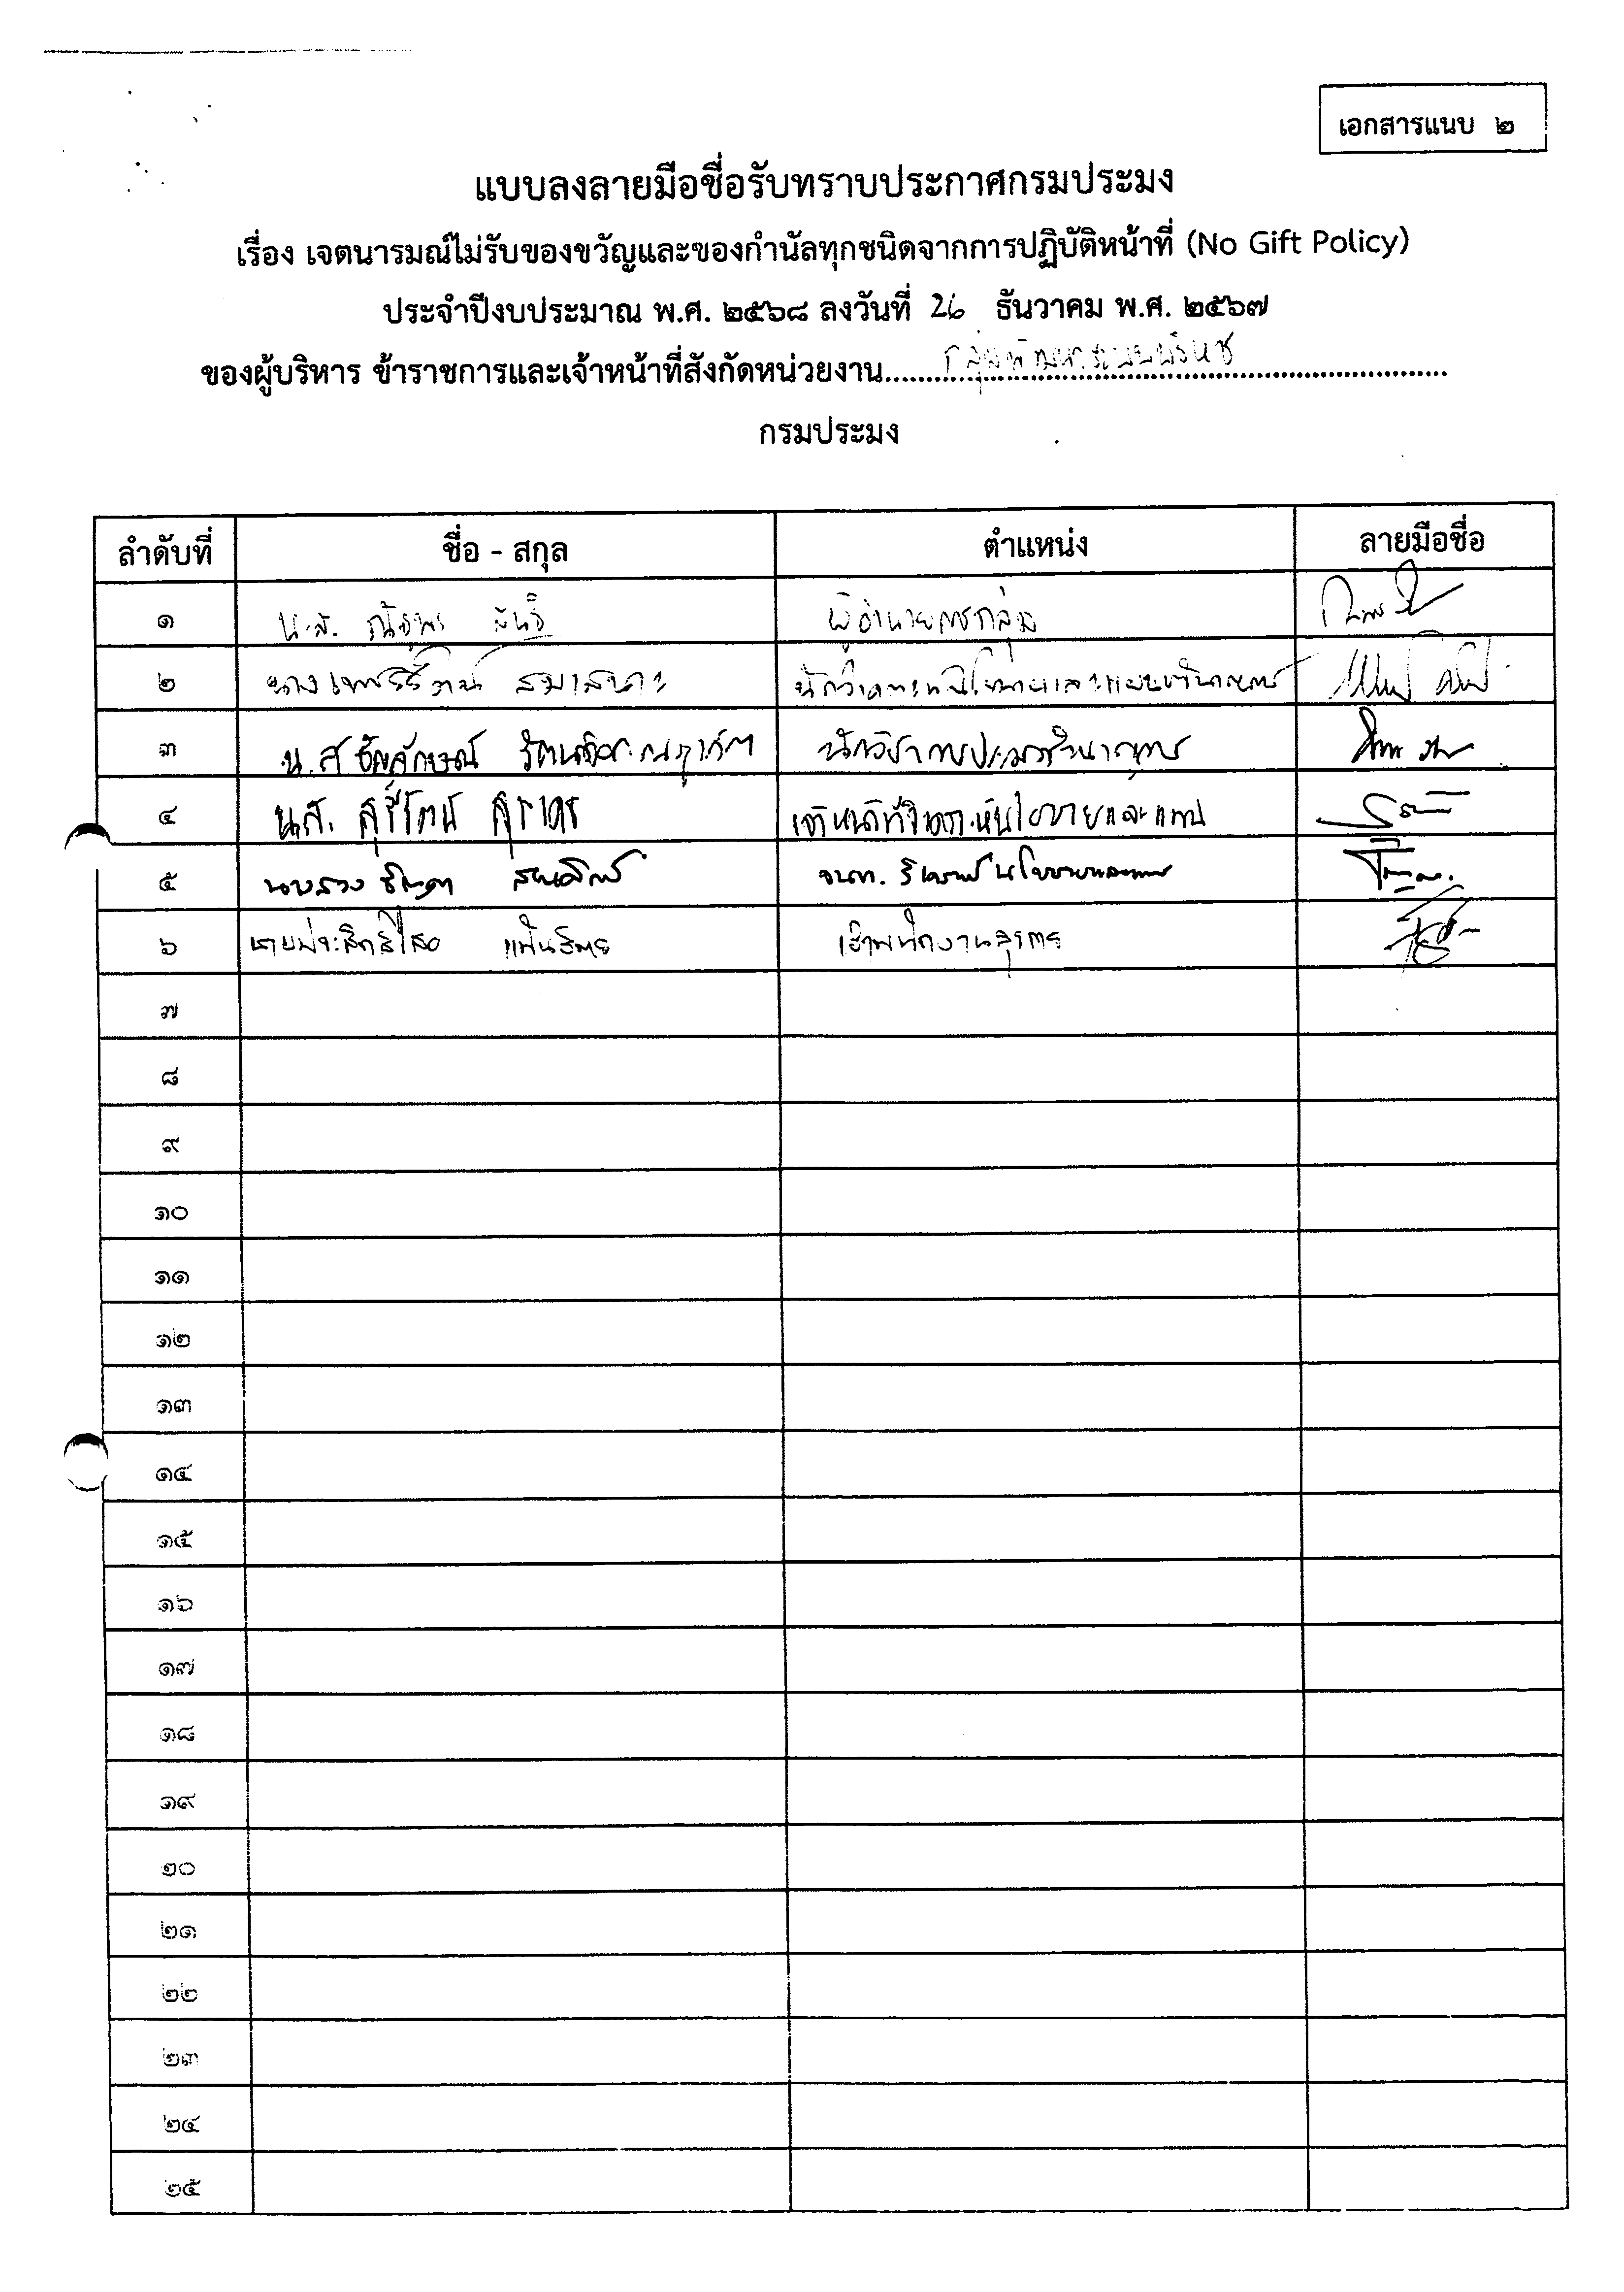 เอกสารแนบ ๒
แบบลงลายมือชื่อรับทราบประกาศกรมประมง
เรื่อง เจตนารมณ์ไม่รับของขวัญและของกำนัลทุกชนิดจากการปฏิบัติหน้าที่ (No Gift Policy)
ประจำปีงบประมาณ พ.ศ. ๒๕๖๘ ลงวันที่ 26 ธันวาคม พ.ศ. ๒๕๖๗
ของผู้บริหาร ข้าราชการและเจ้าหน้าที่สังกัดหน่วยงาน กลุ่มพัฒนาระบบบริหาร
กรมประมง
ลำดับที่ ชื่อ - สกุล ตำแหน่ง ลายมือชื่อ
๑ น.ส. ผู้อำนวยการกลุ่ม
๒ นาง นักวิเคราะห์นโยบายและแผนชำนาญการ
๓ น.ส นักวิชาการประมงชำนาญการ
๔ น.ส. สุรีรัตน์ เจ้าหน้าที่วิเคราะห์นโยบายและแผน
๕ นางสาว จนท. วิเคราะห์นโยบายและแผน
๖ นาย เจ้าพนักงานธุรการ
๗
๘
๙
๑๐
๑๑
๑๒
๑๓
๑๔
๑๕
๑๖
๑๗
๑๘
๑๙
๒๐
๒๑
๒๒
๒๓
๒๔
๒๕